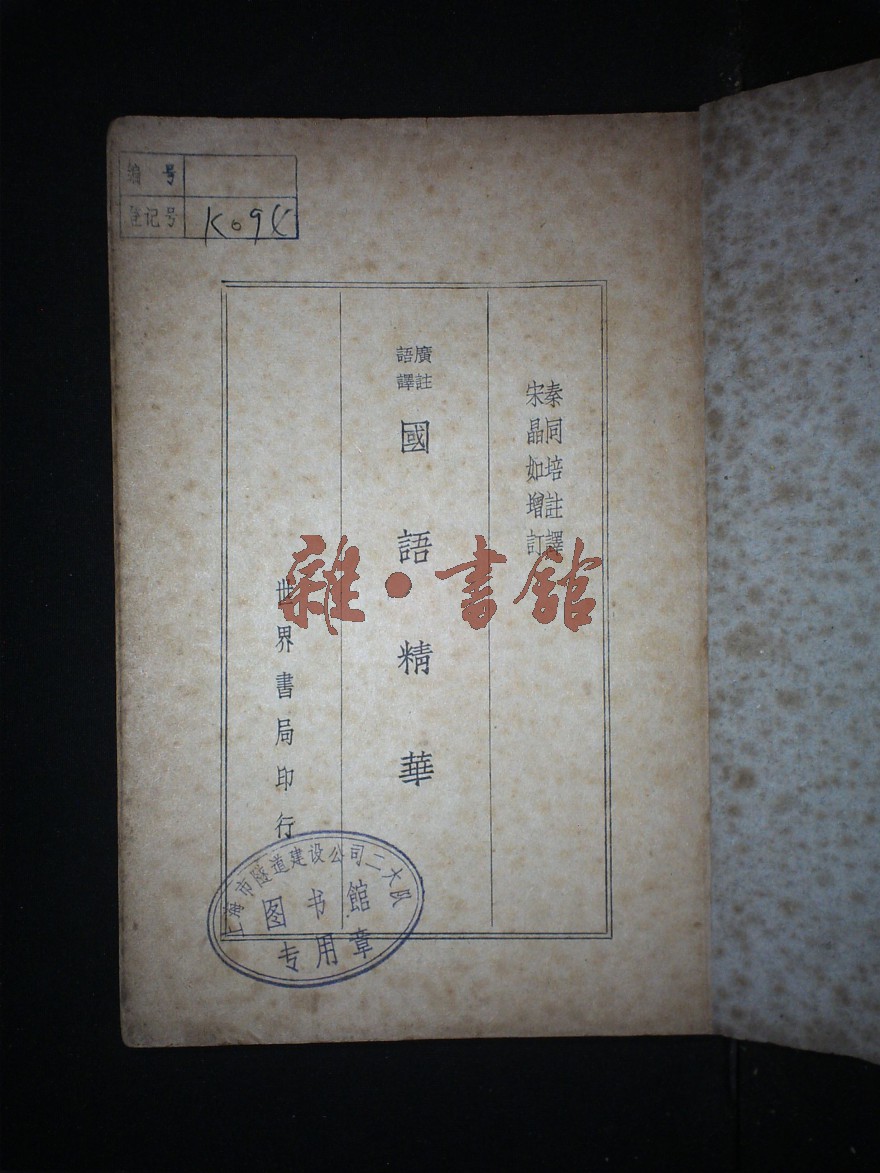 编号
登记号 K094
秦同培註譯
宋晶如增訂
廣註
語譯
國語精華
世界書局印行
雜·書館
上海市隧道建设公司二大队
图书館
专用章